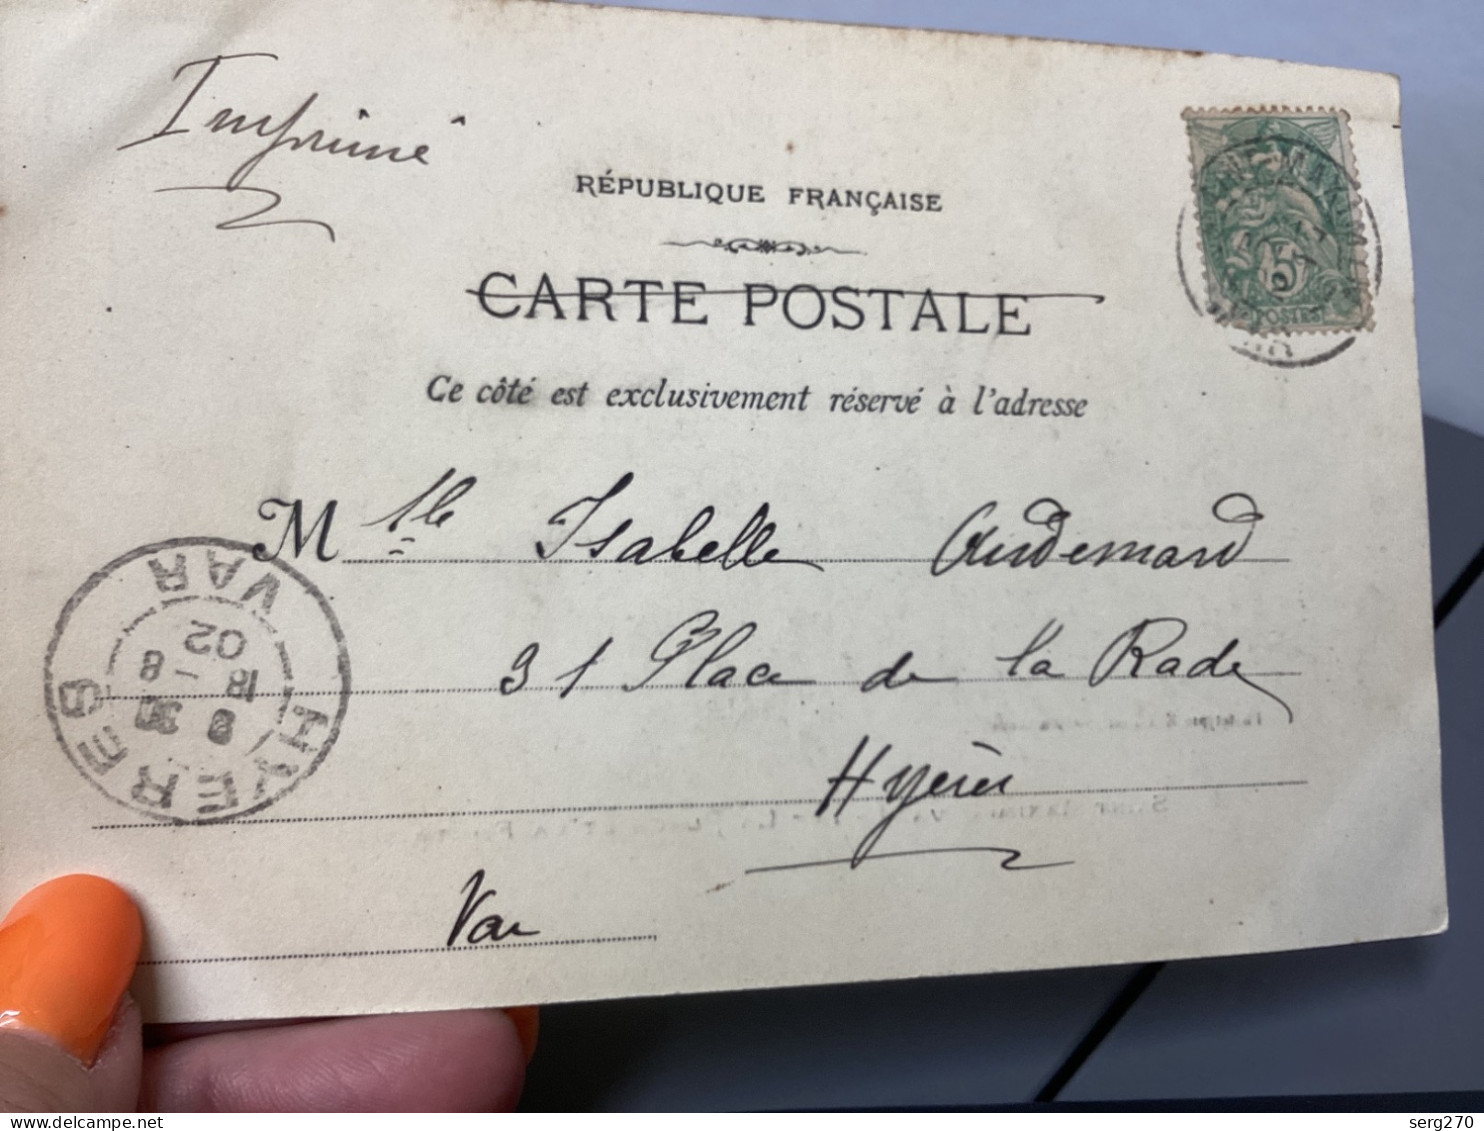 Imprimé
RÉPUBLIQUE FRANÇAISE
CARTE POSTALE
Ce côté est exclusivement réservé à l'adresse
Mlle Isabelle Audemard
31 Place de la Rade
Hyères
Var
5
POSTES
HYERES
VAR
18
8
02
serg270